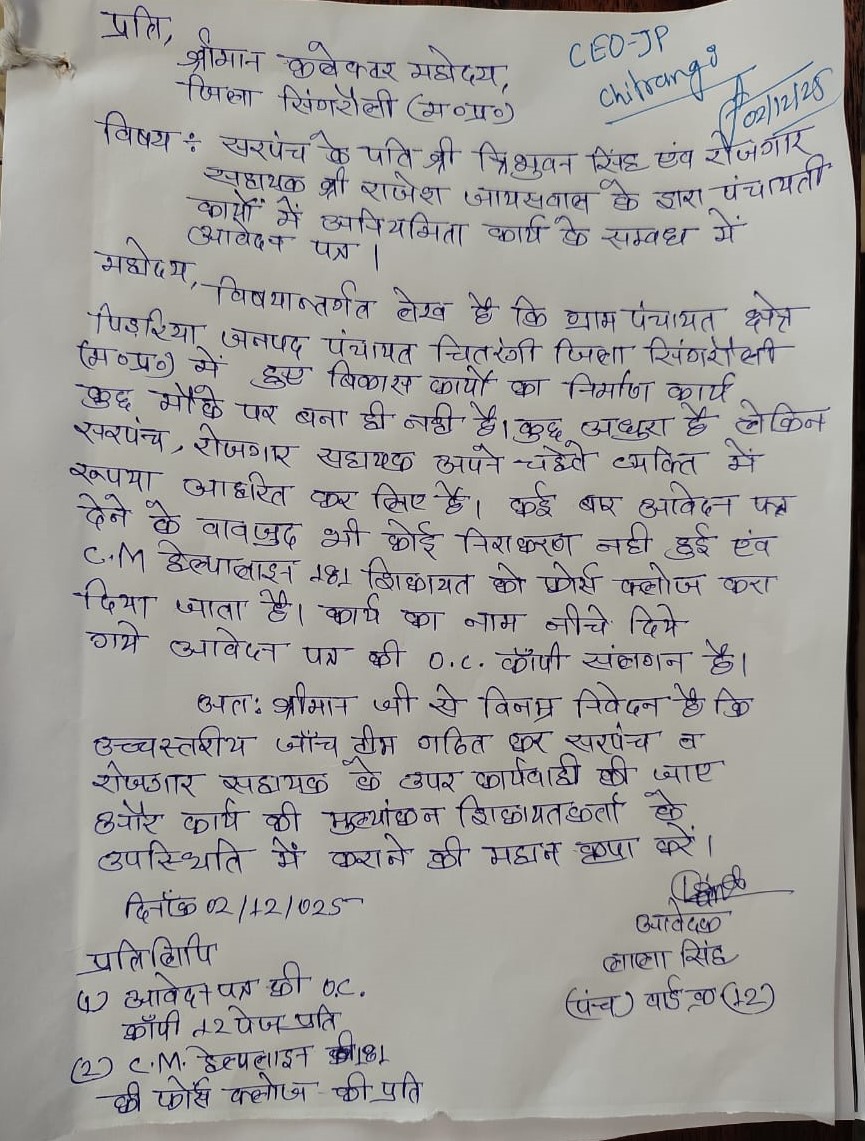 प्रति,
श्रीमान कलेक्टर महोदय,
जिला सिंगरौली (म०प्र०)
CEO-JP
Chitrangi
02/12/25
विषय : सरपंच के पति श्री त्रिभुवन सिंह एंव रोजगार
सहायक श्री राजेश जायसवाल के द्वारा पंचायती
कार्यों में अनियमिता कार्य के सम्बंध में
आवेदन पत्र ।
महोदय,
विषयान्तर्गत लेख है कि ग्राम पंचायत क्षेत्र
पिड़रिया जनपद पंचायत चितरंगी जिला सिंगरौली
(म०प्र०) में हुए विकास कार्यों का निर्माण कार्य
कुछ मौके पर बना ही नही है। कुछ अधुरा है लेकिन
सरपंच, रोजगार सहायक अपने चहेते व्यक्ति में
रूपया आहरित कर लिए है। कई बार आवेदन पत्र
देने के वावजुद भी कोई निराकरण नही हुई एंव
C.M हेल्पलाइन 181 शिकायत को फोर्स क्लोज करा
दिया जाता है। कार्य का नाम नीचे दिये
गये आवेदन पत्र की O.C. कॉपी संलगन है।
अत: श्रीमान जी से विनम्र निवेदन है कि
उच्चस्तरीय जाँच टीम गठित कर सरपंच व
रोजगार सहायक के उपर कार्यवाही की जाए
और कार्य की मुल्यांकन शिकायतकर्ता के
उपस्थिति में कराने की महान कृपा करें।
दिनाँक 02/12/025
आवेदक
लाला सिंह
(पंच) वार्ड क्र (12)
प्रतिलिपि
(1) आवेदन पत्र की O.C.
कॉपी 12 पेज प्रति
(2) C.M. हेल्पलाइन 181
की फोर्स क्लोज की प्रति